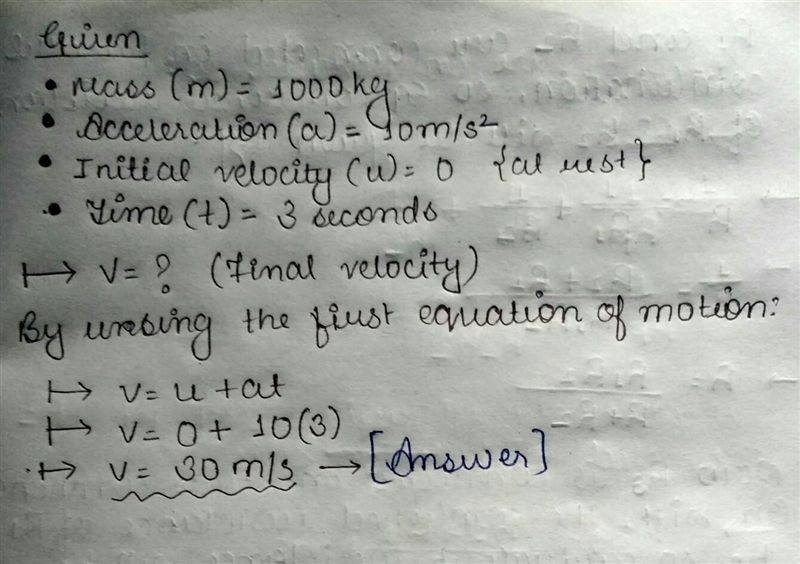 Given
• Mass (m) = 1000 kg
• Acceleration (a) = 10m/s²
• Initial velocity (u) = 0 {at rest}
• Time (t) = 3 seconds
↦ v = ? (Final velocity)
By using the first equation of motion:
↦ v = u + at
↦ v = 0 + 10(3)
↦ v = 30 m/s → [Answer]